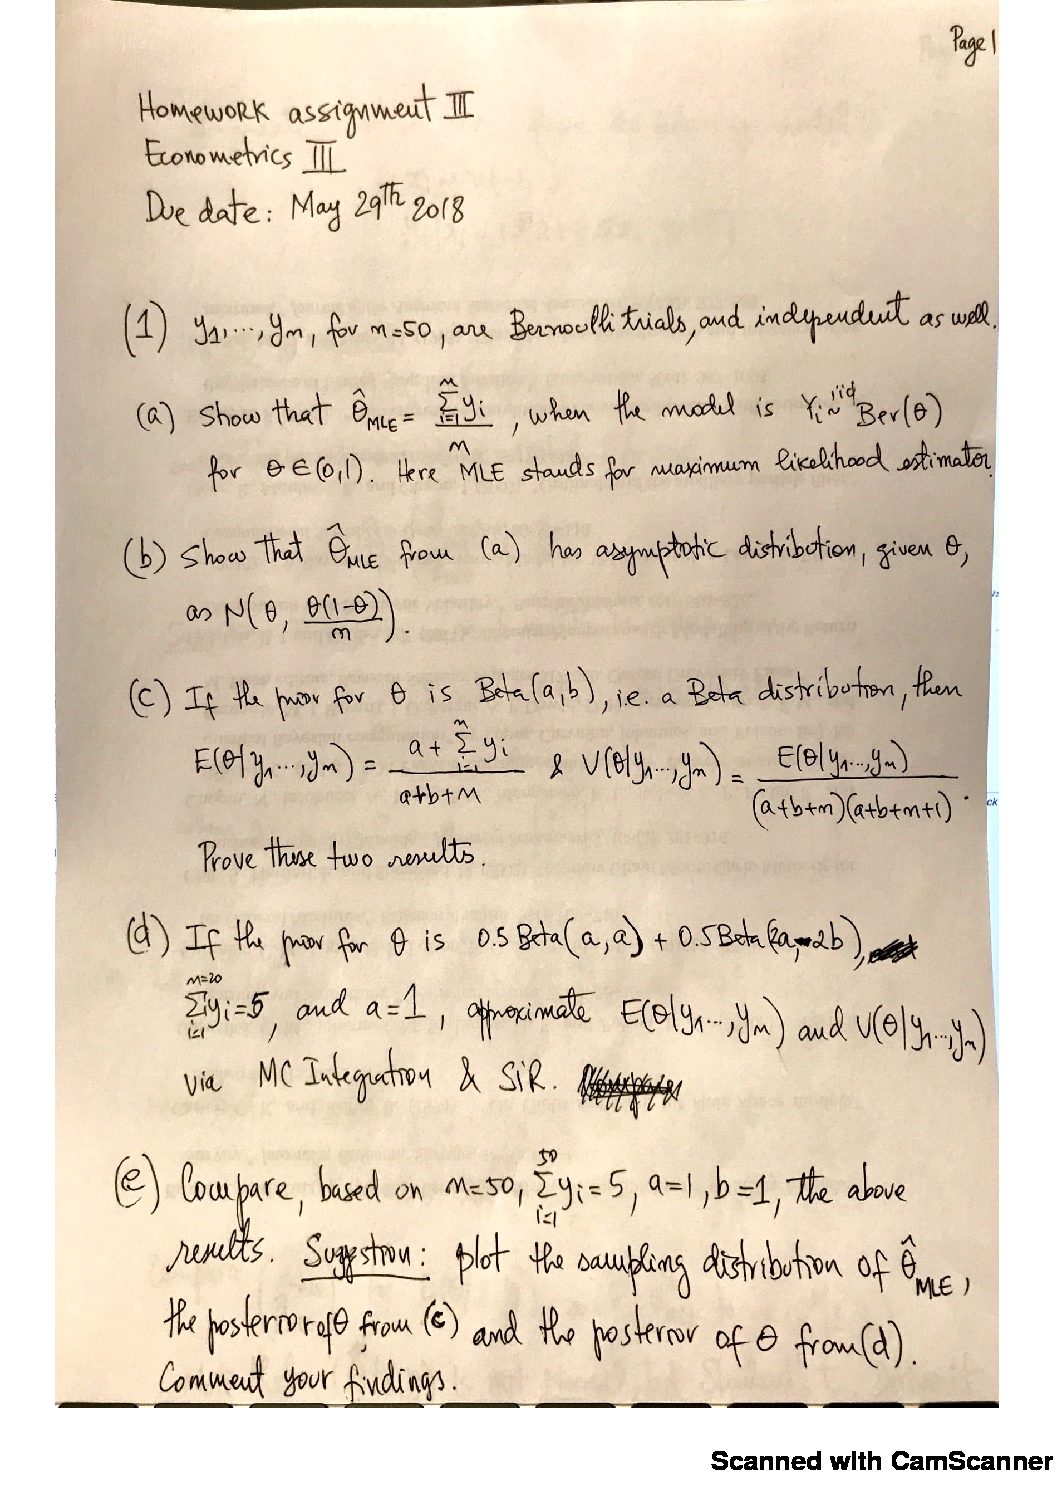 Page 1
Homework assignment III
Econometrics III
Due date: May 29th 2018
(1) y1,...,yn, for n=50, are Bernoulli trials, and independent as well.
(a) Show that θ̂MLE = Σ(i=1 to n) yi / n, when the model is Yi iid~ Ber(θ)
for θ ∈ (0,1). Here MLE stands for maximum likelihood estimator.
(b) Show that θ̂MLE from (a) has asymptotic distribution, given θ,
as N(θ, θ(1-θ)/n).
(c) If the prior for θ is Beta(a,b), i.e. a Beta distribution, then
E(θ|y1...,yn) = (a + Σ(i=1 to n) yi)/(a+b+n) & V(θ|y1...,yn) = E(θ|y1...,yn)/((a+b+n)(a+b+n+1)).
Prove these two results.
(d) If the prior for θ is 0.5 Beta(a,a) + 0.5 Beta(2a,2b),
Σ(i=1 to n=20) yi=5, and a=1, approximate E(θ|y1...,yn) and V(θ|y1...,yn)
via MC Integration & SiR.
(e) Compare, based on n=50, Σ(i=1 to 50) yi=5, a=1, b=1, the above
results. Suggestion: plot the sampling distribution of θ̂MLE,
the posterior of θ from (c) and the posterior of θ from (d).
Comment your findings.
Scanned with CamScanner